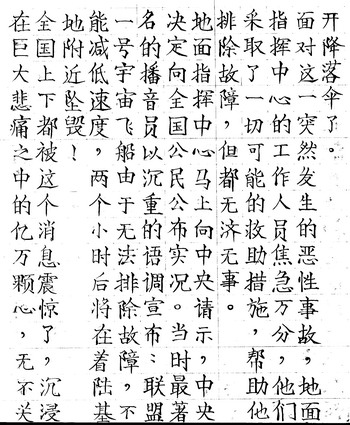 开降落伞了。
面对这一突然发生的恶性事故，地面
指挥中心的工作人员焦急万分，他们
采取了一切可能的救助措施，帮助他
排除故障，但都无济无事。
地面指挥中心马上向中央请示，中央
决定向全国公民公布实况。当时最著
名的播音员以沉重的语调宣布：联盟
一号宇宙飞船由于无法排除故障，不
能减低速度，两个小时后将在着陆基
地附近坠毁！
全国上下都被这个消息震惊了，沉浸
在巨大悲痛之中的亿万颗心，无不关